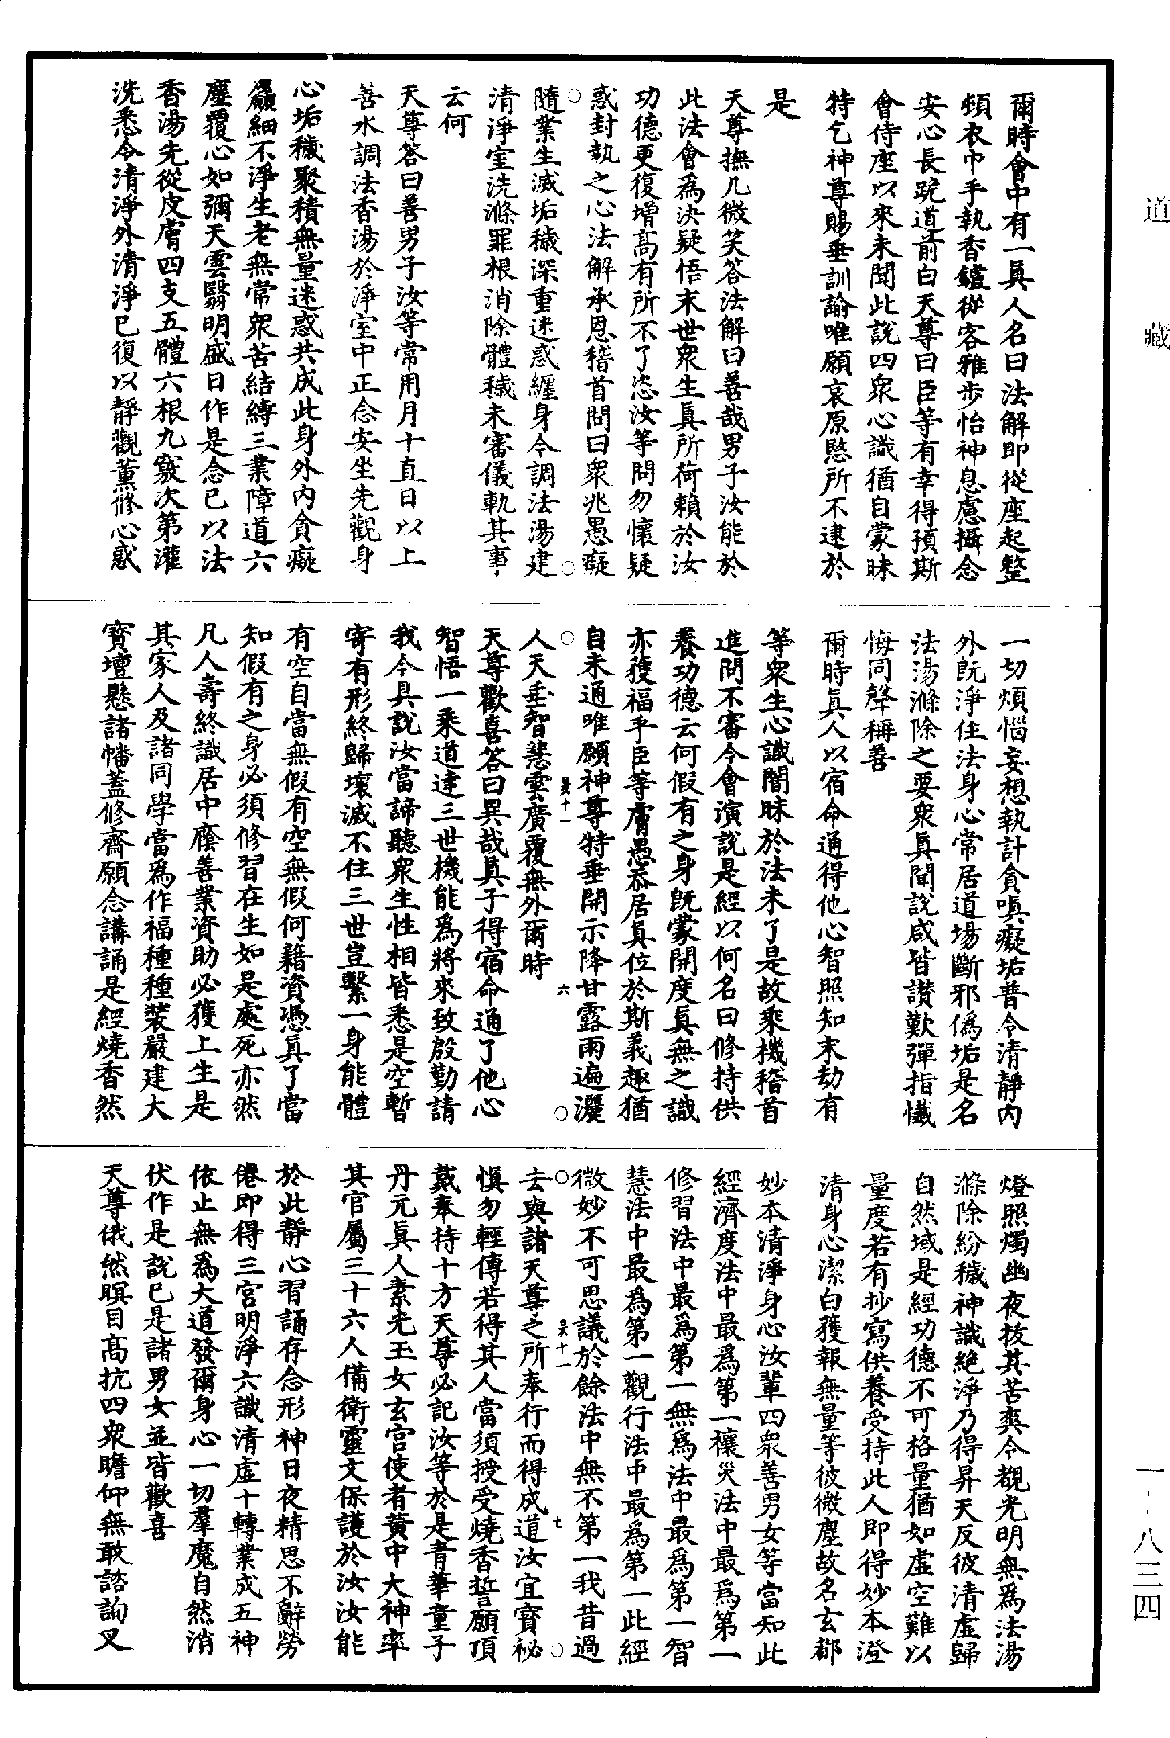 道藏
爾時會中有一眞人名曰法解即從座起整
頓衣巾手執香鑪從容雅步怡神息慮攝念
安心長跪道前白天尊曰臣等有幸得預斯
會侍座以來未聞此說四衆心識猶自蒙昧
特乞神尊賜垂訓諭唯願哀原愍所不逮於
是
天尊撫几微笑答法解曰善哉男子汝能於
此法會爲決疑悟末世衆生眞所荷賴於汝
功德更復增高有所不了恣汝等問勿懷疑
惑封執之心法解承恩稽首問曰衆兆愚癡
隨業生滅垢穢深重迷惑纏身令調法湯建
清淨室洗滌罪根消除體穢未審儀軌其事
云何
天尊答曰善男子汝等常用月十直日以上
善水調法香湯於淨室中正念安坐先觀身
心垢穢聚積無量迷惑共成此身外內貪癡
麤細不淨生老無常衆苦結縛三業障道六
塵覆心如彌天雲翳明盛日作是念已以法
香湯先從皮膚四支五體六根九竅次第灌
洗悉令清淨外清淨已復以靜觀薰修心惑
一切煩惱妄想執計貪嗔癡垢普令清靜內
外旣淨住法身心常居道場斷邪僞垢是名
法湯滌除之要衆眞聞說咸皆讚歎彈指懺
悔同聲稱善
爾時眞人以宿命通得他心智照知末劫有
等衆生心識闇昧於法未了是故乘機稽首
進問不審今會演說是經以何名曰修持供
養功德云何假有之身旣蒙開度眞無之識
亦獲福乎臣等膚愚忝居眞位於斯義趣猶
自未通唯願神尊特垂開示降甘露雨遍灑
人天垂智慧雲廣覆無外爾時
天尊歡喜答曰異哉眞子得宿命通了他心
智悟一乘道達三世機能爲將來致殷勤請
我今具說汝當諦聽衆生性相皆悉是空暫
寄有形終歸壞滅不住三世豈繫一身能體
有空自當無假有空無假何藉資憑眞了當
知假有之身必須修習在生如是處死亦然
凡人壽終識居中廕善業資助必獲上生是
其家人及諸同學當爲作福種種裝嚴建大
寶壇懸諸幡蓋修齋願念講誦是經燒香然
燈照燭幽夜拔其苦爽令覩光明無爲法湯
滌除紛穢神識絕淨乃得昇天反彼清虛歸
自然域是經功德不可格量猶如虛空難以
量度若有抄寫供養受持此人即得妙本澄
清身心潔白獲報無量等彼微塵故名玄都
妙本清淨身心汝輩四衆善男女等當知此
經濟度法中最爲第一禳災法中最爲第一
修習法中最爲第一無爲法中最爲第一智
慧法中最爲第一觀行法中最爲第一此經
微妙不可思議於餘法中無不第一我昔過
去與諸天尊之所奉行而得成道汝宜寶祕
愼勿輕傳若得其人當須授受燒香誓願頂
戴奉持十方天尊必記汝等於是青華童子
丹元眞人素光玉女玄宮使者黃中大神率
其官屬三十六人備衛靈文保護於汝汝能
於此靜心習誦存念形神日夜精思不辭勞
倦即得三宮明淨六識清虛十轉業成五神
依止無爲大道發爾身心一切羣魔自然消
伏作是說已是諸男女並皆歡喜
天尊俄然瞑目高抗四衆瞻仰無敢諮詢叉
一-八三四